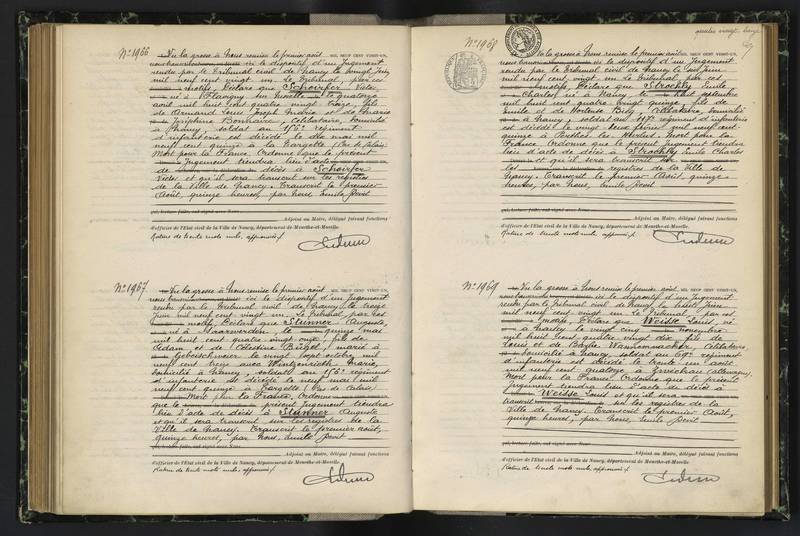 N° 1966
Vu la grosse à Nous remise le premier août MIL NEUF CENT VINGT-UN,
ici le dispositif d'un Jugement
rendu par le Tribunal civil de Nancy le
mil neuf cent vingt un. Le Tribunal, par ces
motifs, Déclare que Schoirfer Victor
né à Flavigny sur Moselle le quatorze
août mil huit cent quatre vingt treize, fils
de Armand Joseph Marie et de Marie
Joséphine Bonhaire, Célibataire, domicilié
à Nancy, soldat au 156e régiment
d'infanterie est décédé le dix mai mil
neuf cent quinze à la Targette (Pas de Calais)
Mort pour la France. Ordonne que le présent
Jugement tiendra lieu d'acte
de décès à Schoirfer
Victor et qu'il sera transcrit sur les registres
de la Ville de Nancy. Transcrit le premier
Août, quinze heures, par Nous, Emile Devit
qui, lecture faite, ont signé avec Nous
Adjoint au Maire, délégué faisant fonctions
d'officier de l'Etat civil de la Ville de Nancy, département de Meurthe-et-Moselle.
Rature de trente mots nuls, approuvée /.
N° 1967
Vu la grosse à Nous remise le premier août MIL NEUF CENT VINGT-UN,
ici le dispositif d'un Jugement
rendu par le Tribunal civil de Nancy, le treize
Juin mil neuf cent vingt un. Le Tribunal par ces
motifs, Déclare que Stinner Auguste
né à Saarwerden le quinze mai
mil huit cent quatre vingt onze, fils de
Adam et de Célestine Bitzel, marié à
Gebersschweier le vingt sept octobre mil
neuf cent treize avec Marie,
domicilié à Nancy, soldat au 156e régiment
d'infanterie est décédé le neuf mai mil
neuf cent quinze à Targette (Pas de Calais)
Mort pour la France, Ordonne
que le présent Jugement tiendra
lieu d'acte de décès à Stinner Auguste
et qu'il sera transcrit sur les registres de la
Ville de Nancy. Transcrit le premier août,
quinze heures, par Nous, Emile Devit
qui, lecture faite, ont signé avec Nous
Adjoint au Maire, délégué faisant fonctions
d'officier de l'Etat civil de la Ville de Nancy, département de Meurthe-et-Moselle.
Rature de trente mots nuls, approuvée /.
quatre vingt
N° 1968
Vu la grosse à Nous remise le premier août MIL NEUF CENT VINGT-UN,
ici le dispositif d'un Jugement
rendu par le Tribunal civil de Nancy le Juin
mil neuf cent vingt un. Le Tribunal par ces
motifs, Déclare que Strochly Emile
Charles né à Nancy le huit
mil huit cent quatre vingt quinze, fils de
Emile et de Hortense Célibataire, domicilié
à Nancy, soldat au régiment d'infanterie
est décédé le vingt deux février mil neuf cent
quinze à Perthes les Hurlus. Mort pour la
France. Ordonne que le présent Jugement tiendra
lieu d'acte de décès à Strochly Emile Charles
et qu'il sera transcrit sur
les registres de la Ville de
Nancy. Transcrit le premier Août, quinze
heures, par Nous, Emile Devit
qui, lecture faite, ont signé avec Nous
Adjoint au Maire, délégué faisant fonctions
d'officier de l'Etat civil de la Ville de Nancy, département de Meurthe-et-Moselle.
Rature de trente mots nuls, approuvée /.
N° 1969
Vu la grosse à Nous remise le premier août MIL NEUF CENT VINGT-UN,
ici le dispositif d'un Jugement
rendu par le Tribunal civil de Nancy, le Juin
mil neuf cent vingt un. Le Tribunal par ces
motifs, Déclare que Weisse Louis, né
à Harley le vingt cinq novembre
mil huit cent quatre vingt dix, fils de
Louis et de Célibataire,
domicilié à Nancy, soldat au 69e régiment
d'infanterie est décédé le trente un août
mil neuf cent quatorze à Zwickau (Allemagne)
Mort pour la France. Ordonne que le présent
Jugement tiendra lieu d'acte de décès à
Weisse Louis et qu'il sera
transcrit sur les registres de la
Ville de Nancy. Transcrit le premier Août,
quinze heures, par Nous, Emile Devit
qui, lecture faite, ont signé avec Nous
Adjoint au Maire, délégué faisant fonctions
d'officier de l'Etat civil de la Ville de Nancy, département de Meurthe-et-Moselle.
Rature de trente mots nuls, approuvée /.